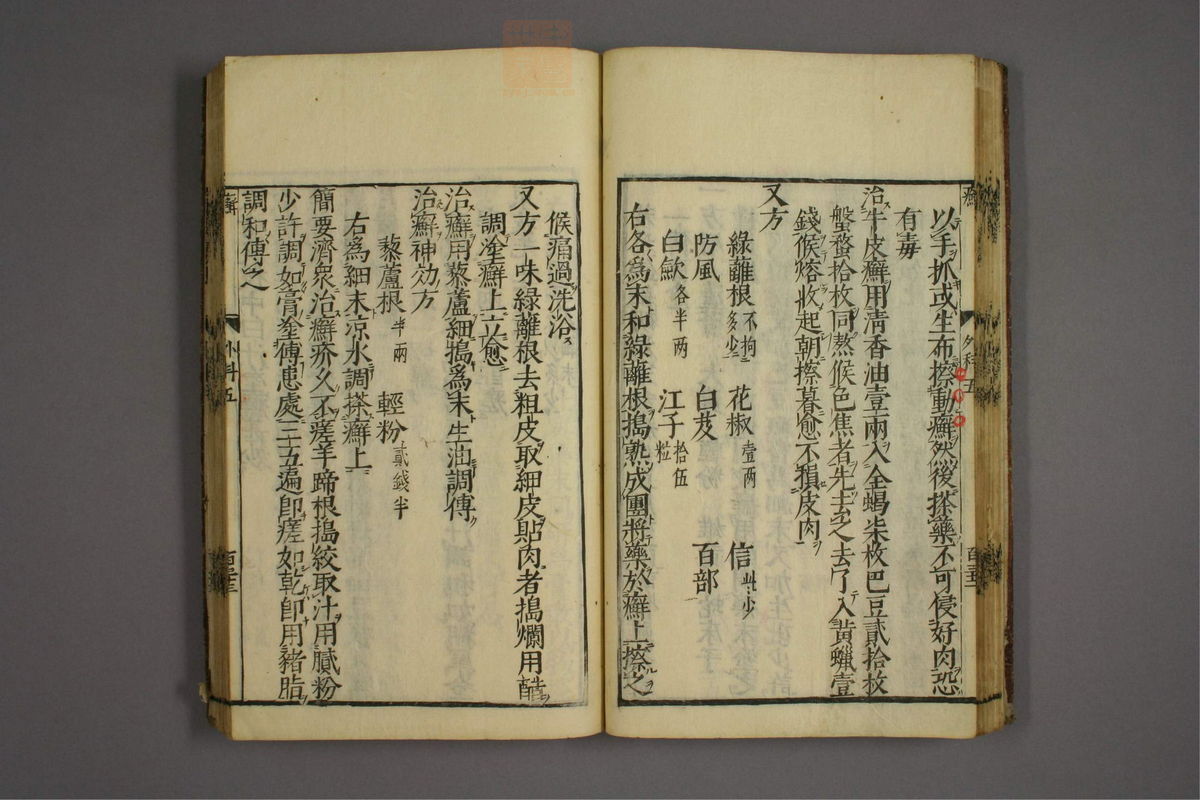 以手抓或生布擦動癬然後搽藥不可侵好肉恐
有毒
治牛皮癬用清香油壹兩入全蝎柒枚巴豆貳拾枚
盤蝥拾枚同熬候色焦者先去之去了入黃蠟壹
錢候熔收起朝擦暮愈不損皮肉
又方
綠蘺根不拘多少 花椒壹兩 信些少
防風 白芨 百部
白歛各半兩 江子拾伍粒
右各為末和綠蘺根搗熟成團將藥於癬上擦之
外科五
候痛過洗浴
又方一味綠蘺根去粗皮取細皮貼肉者搗爛用醋
調塗癬上立愈
治癬用藜蘆細搗為末生油調傅
治癬神効方
藜蘆根半兩 輕粉貳錢半
右為細末凉水調搽癬上
簡要濟衆治癬疥久不瘥羊蹄根搗絞取汁用膩粉
少許調如膏塗傅患處三五遍即瘥如乾即用豬脂
調和傅之
外科五